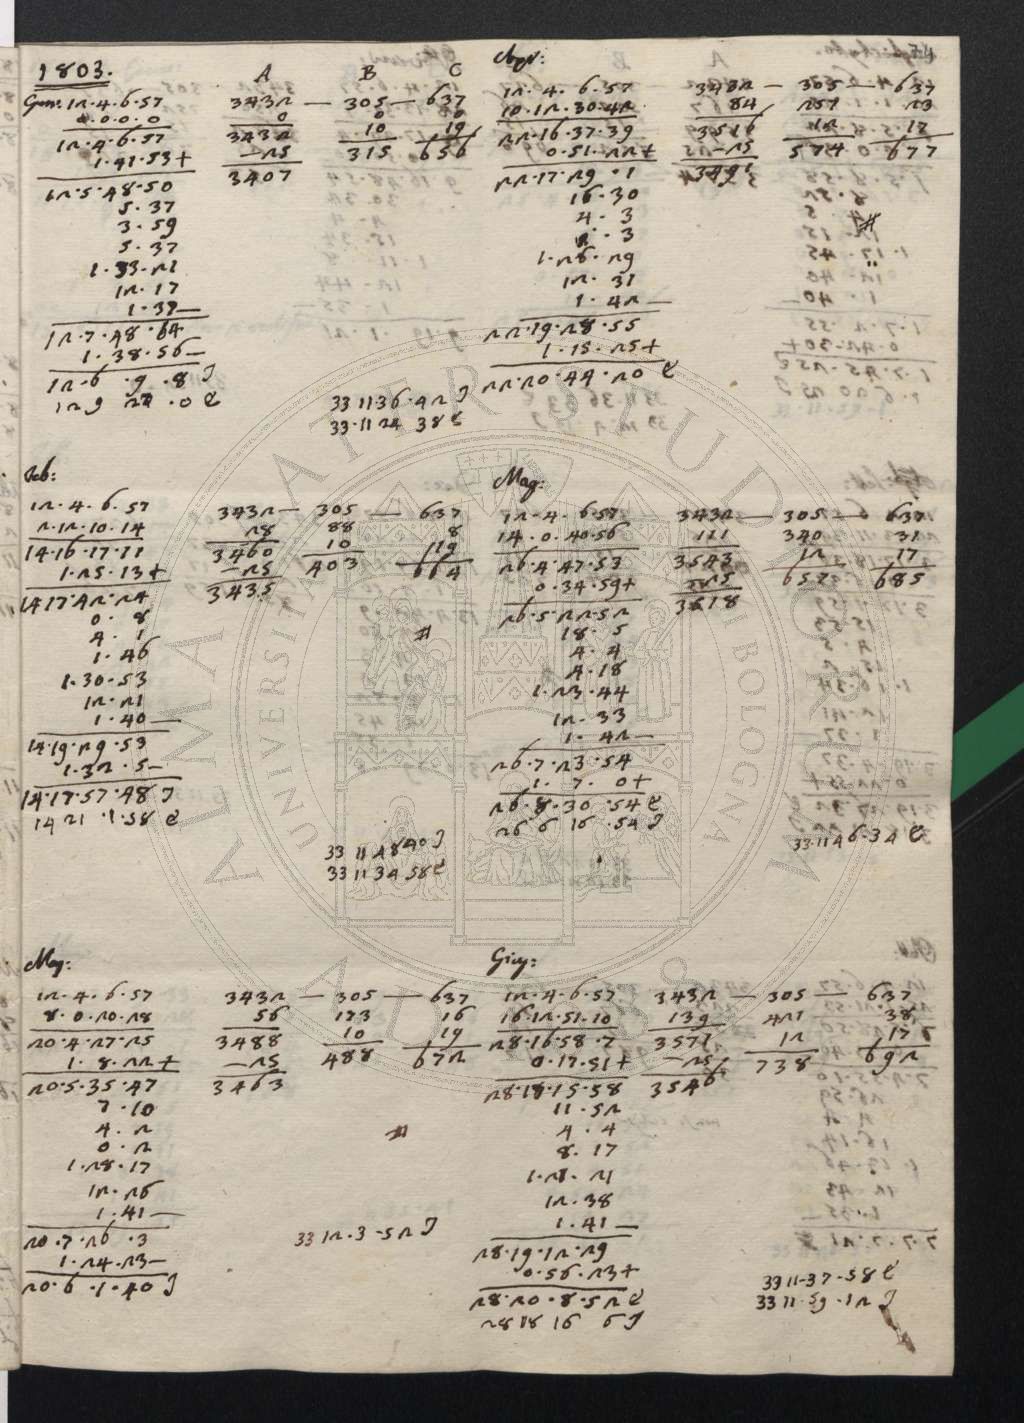 1803.
A B C
Gen: 12.4.6.57 3432 — 305 — 637
0.0.0.0 0 0 0
12.4.6.57 3432 10 19
1.41.53+ —25 315 656
12.5.48.50 3407
5.37
3.59
5.37
1.33.21
12.17
1.37—
12.7.48.64
1.38.56—
12.6.9.8
33 11 36.42
33.11 24 38
Apr:
12.4.6.57 3432 — 305 — 637
10.12.30.42 84 257 23
22.16.37.39 3516 12 17
0.51.22+ —25 574 677
22.17.29.1 3491
16.30
4.3
2.3
1.26.29
12.31
1.42—
22.19.28.55
1.15.25+
22.20.44.20
Feb:
12.4.6.57 3432 — 305 — 637
2.12.10.14 28 88 8
14.16.17.11 3460 10 19
1.25.13+ —25 403 664
14.17.42.24 3435
0.8
4.1
1.46
1.30.53
12.21
1.40—
14.19.29.53
1.32.5—
14.17.57.48
14 21 .1.58
33 11 48 40
33 11 34 58
Mag:
12.4.6.57 3432 — 305 — 637
14.0.40.56 111 340 31
26.4.47.53 3543 12 17
0.34.59+ —25 657 685
26.5.22.52 3518
18.5
4.4
4.18
1.23.44
12.33
1.42—
26.7.23.54
1.7.0+
26.8.30.54
26 6 16.54
33.11 46.34
Mar:
12.4.6.57 3432 — 305 — 637
8.0.20.28 56 173 16
20.4.27.25 3488 10 19
1.8.22+ —25 488 672
20.5.35.47 3463
7.10
4.2
0.2
1.28.17
12.26
1.41—
20.7.26.3
1.24.23—
20.6.1.40
33 12.3.52
Giu:
12.4.6.57 3432 — 305 — 637
16.12.51.10 139 421 38
28.16.58.7 3571 12 17
0.17.51+ —25 738 692
28.18.15.58 3546
11.52
4.4
8.17
1.21.21
12.38
1.41—
28.19.12.29
0.56.23+
28.20.8.52
28 18 16 6
33 11.37.58
33 11.59.12